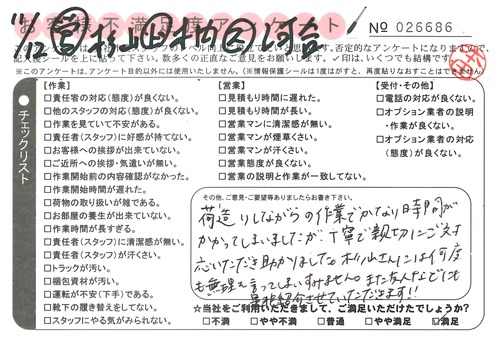 お客様不満足度アンケート
No 026686
11/12 営 杉山 作 千内 名 河合
記入後シールを上に貼って下さい。数多くの正直なご意見をお願いします。✓印は、いくつでも結構です。
※このアンケートは、アンケート目的以外には使用いたしません。(※情報保護シールは1度はがすと、再度貼りなおすことはできません)
チェックリスト
【作業】
□責任者の対応(態度)が良くない。
□他のスタッフの対応(態度)が良くない。
□作業を見ていて不安がある。
□責任者(スタッフ)に好感が持てない。
□お客様への挨拶が出来ていない。
□ご近所への挨拶・気遣いが無い。
□作業開始前の内容確認がなかった。
□作業開始時間が遅れた。
□荷物の取り扱いが雑である。
□お部屋の養生が出来ていない。
□作業時間が長すぎる。
□責任者(スタッフ)に清潔感が無い。
□責任者(スタッフ)が汗くさい。
□トラックが汚い。
□梱包資材が汚い。
□運転が不安(下手)である。
□靴下の履き替えをしてない。
□スタッフにやる気がみられない。
【営業】
□見積もり時間に遅れた。
□見積もり時間が長い。
□営業マンに清潔感が無い。
□営業マンが煙草くさい。
□営業マンが汗くさい。
□営業態度が良くない。
□営業の説明と作業が一致してない。
【受付・その他】
□電話の対応が良くない。
□オプション業者の説明・作業が良くない。
□オプション業者の対応(態度)が良くない。
その他、ご意見・ご要望等ありましたらお書き下さい。
荷造りしながらの作業でかなり時間が
かかってしまいましたが、丁寧で親切にご対
応いただき助かりました。杉山さんには何度
も無理を言ってしまいすみません。また友人などにも
是非紹介させていただきます!!
☆当社をご利用いただきまして、ご満足いただけたでしょうか?
□不満 □やや不満 □普通 □やや満足 ☑満足